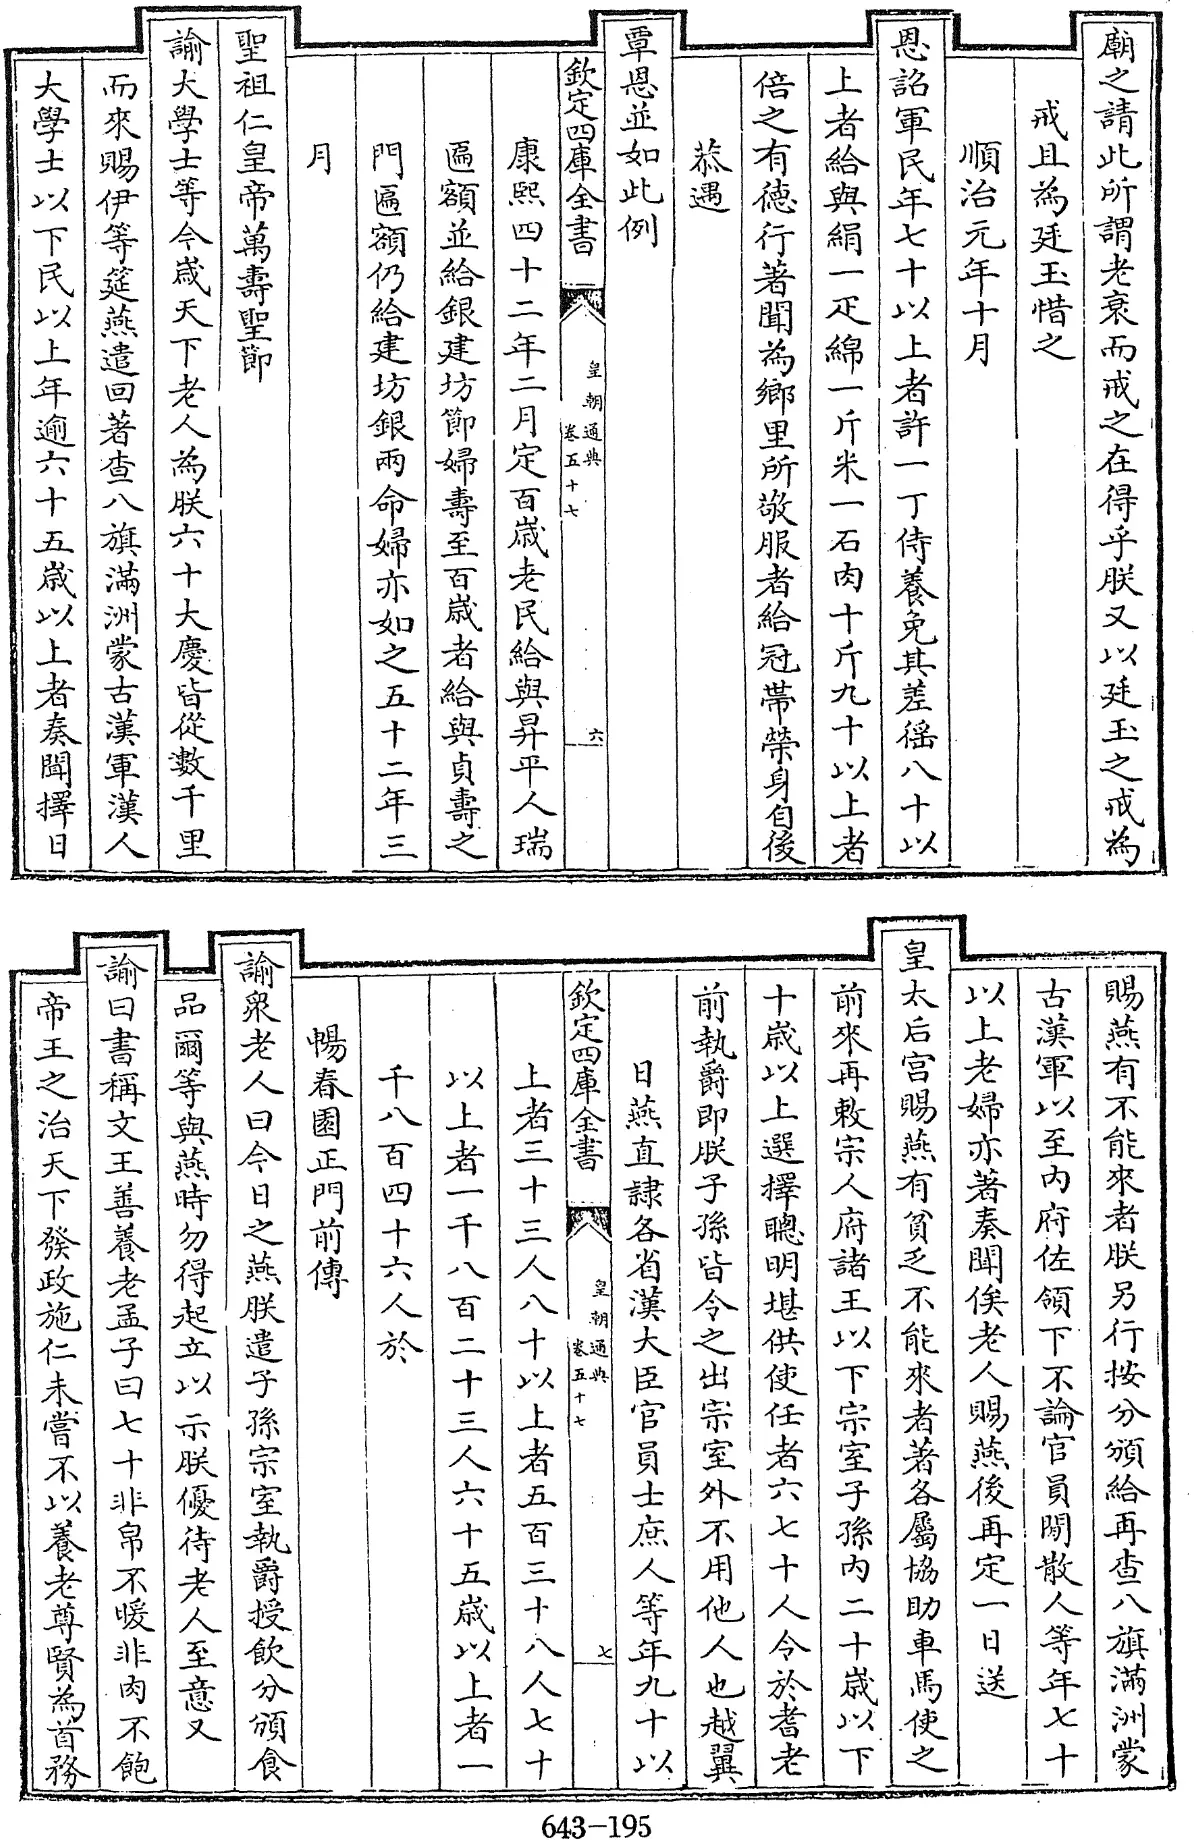 廟之請此所謂老衰而戒之在得乎朕又以廷玉之戒為
戒且為廷玉惜之
順治元年十月
恩詔軍民年七十以上者許一丁侍養免其差徭八十以
上者給與絹一疋綿一斤米一石肉十斤九十以上者
倍之有德行著聞為鄉里所敬服者給冠帶榮身自後
恭遇
覃恩並如此例
欽定四庫全書
皇朝通典
卷五十七
六
康熙四十二年二月定百歲老民給與昇平人瑞
匾額並給銀建坊節婦壽至百歲者給與貞壽之
門匾額仍給建坊銀兩命婦亦如之五十二年三
月
聖祖仁皇帝萬壽聖節
諭大學士等今歲天下老人為朕六十大慶皆從數千里
而來賜伊等筵燕遣回著查八旗滿洲蒙古漢軍漢人
大學士以下民以上年逾六十五歲以上者奏聞擇日
賜燕有不能來者朕另行按分頒給再查八旗滿洲蒙
古漢軍以至内府佐領下不論官員閒散人等年七十
以上老婦亦著奏聞俟老人賜燕後再定一日送
皇太后宫賜燕有貧乏不能來者著各屬協助車馬使之
前來再敕宗人府諸王以下宗室子孫内二十歲以下
十歲以上選擇聰明堪供使任者六七十人令於耆老
前執爵即朕子孫皆令之出宗室外不用他人也越翼
日燕直隷各省漢大臣官員士庶人等年九十以
欽定四庫全書
皇朝通典
卷五十七
七
上者三十三人八十以上者五百三十八人七十
以上者一千八百二十三人六十五歲以上者一
千八百四十六人於
暢春園正門前傳
諭衆老人曰今日之燕朕遣子孫宗室執爵授飲分頒食
品爾等與燕時勿得起立以示朕優待老人至意又
諭曰書稱文王善養老孟子曰七十非帛不暖非肉不飽
帝王之治天下發政施仁未嘗不以養老尊賢為首務
643-195